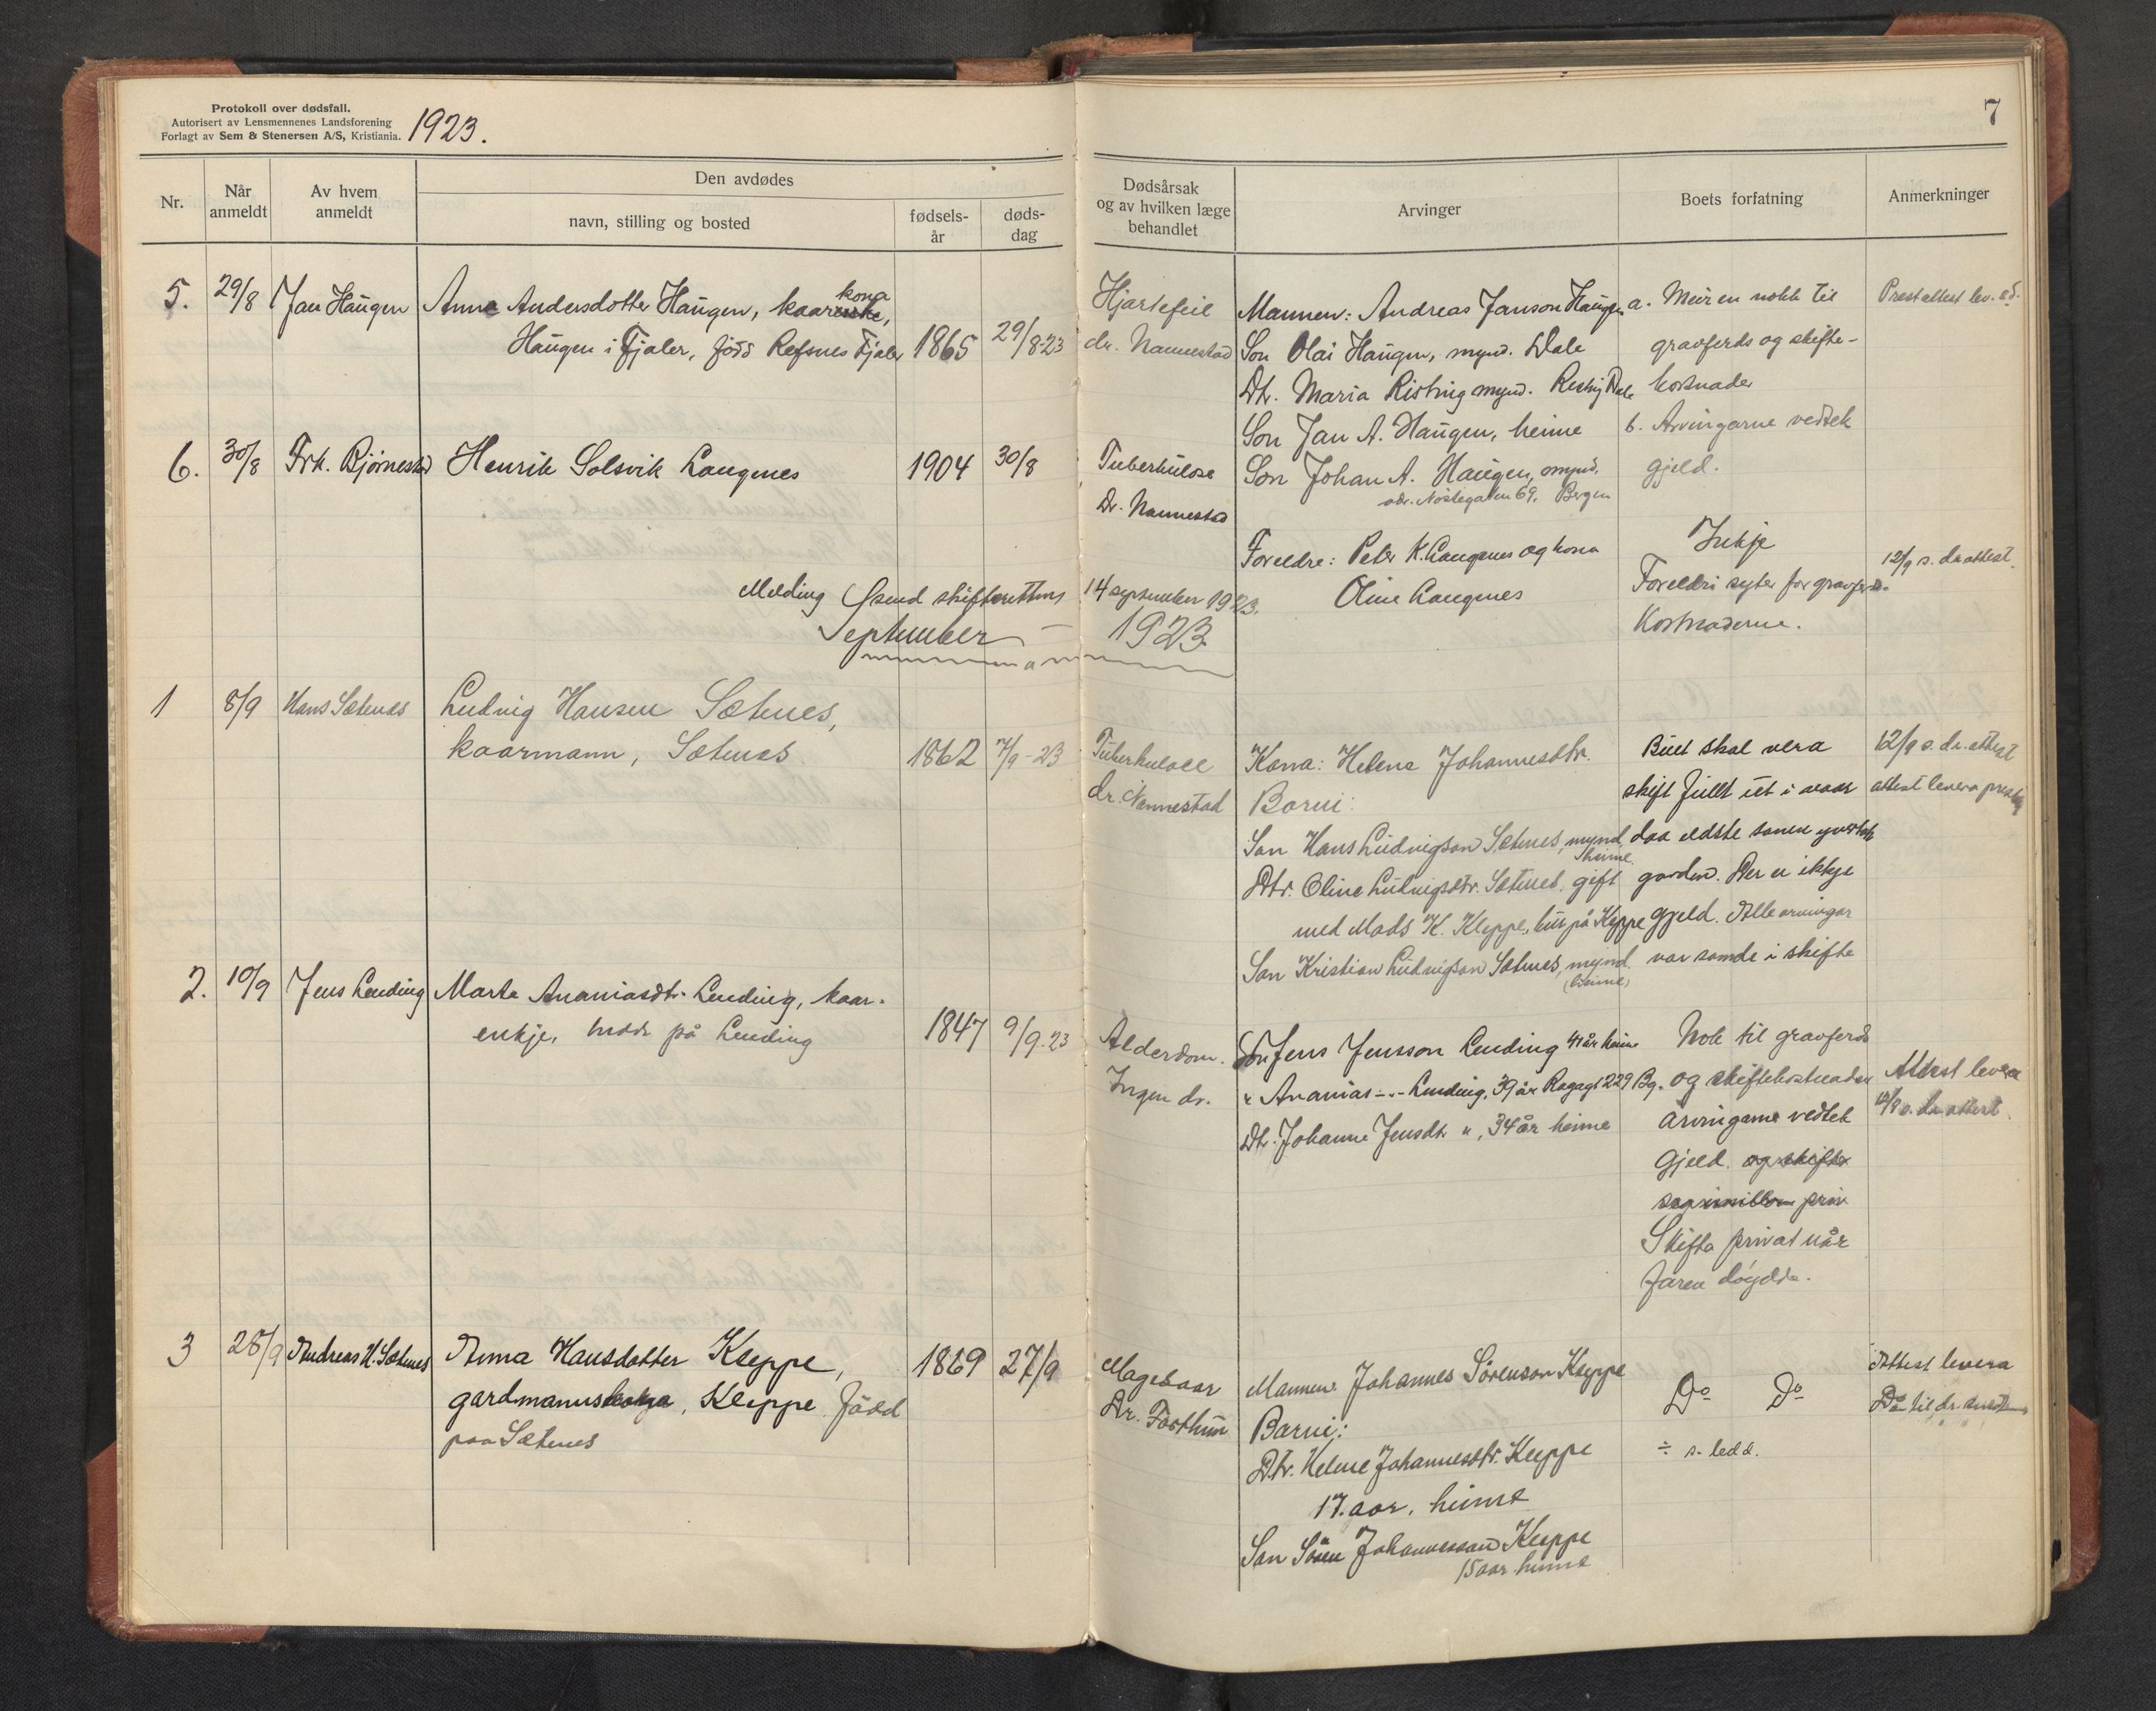 Protokoll over dødsfall.
Autorisert av Lensmennenes Landsforening
Forlagt av Sem & Stenersen A/S, Kristiania.
1923.
7
Nr.
Når anmeldt
Av hvem anmeldt
Den avdødes
navn, stilling og bosted
fødsels-år
døds-dag
Dødsårsak og av hvilken læge behandlet
Arvinger
Boets forfatning
Anmerkninger
5. 29/8 Jan Haugen Anna Andersdotter Haugen, kaar kona,
Haugen i Fjaler, född Refsnes Fjaler 1865 29/8-23
Hjartefeil
dr. Nannestad
Mannen: Andreas Janson Haugen
Son Olai Haugen, mynd. Dale
Dtr. Maria Risting mynd. Dale
Son Jan A. Haugen, heime
Son Johan A. Haugen, mynd.
adr. Nöstegaten 69, Bergen
a. Meir en nokk til
gravferds og skifte-
kostnader
b. Arvingarne vedtek
gjeld.
Prestattest lev.
6. 30/8 Frk. Bjørnestad Henrik Solsvik Laugnes 1904 30/8
Tuberkulose
Dr. Nannestad
Foreldre: Peter K. Laugenes og kona
Oline Laugnes
Inkje
Foreldri syter for gravferds-
kostnaderne.
12/9 s. dr. attest.
Melding send skifteretten 14 september 1923.
September 1923
1 8/9 Hans Sætenes Ludvig Hansen Sætenes,
kaarmann, Sætenes 1862 7/9-23
Tuberkulose
dr. Nannestad
Kona: Helene Johannesdtr.
Borni:
Son Hans Ludvigson Sætenes, mynd.
heime.
Dtr. Oline Ludvigsdtr. Sætenes, gift
med Mads K. Kleppe, bur på Kleppe
Son Kristian Ludvigson Sætenes, mynd.
(heime)
Buet skal vera
skift fullt ut i vaar
daa eldste sonen yvertok
garden. Der er ikkje
gjeld. Alle arvingar
var samde i skifte
12/9 s. dr. attest
attest levera
2. 10/9 Jens Lending Marta Ananiasdtr. Lending, kaar-
enkje, på Lending 1847 9/9-23
Alderdom.
Ingen dr.
Son Jens Jensson Lending 41 år heime
" Ananias -"- Lending, 39 år 229 Bg.
Dtr. Johanne Jensdtr. ", 34 år heime
Nok til gravferds
og skiftekostnader
Arvingane vedtek
Gjeld. og skifter
seg imillom priv.
Skifta privat når
faren döydde.
Attest levera
s. dr. attest
3 28/9 Andreas H. Sætenes Anna Hansdotter Kleppe,
gardmannskona, Kleppe född
paa Sætenes 1869 27/9
Magesaar
Dr. Forthun
Mannen Johannes Sörenson Kleppe
Barni:
Dtr. Helene Johannesdtr. Kleppe
17. aar, heime
Son Sören Johannesson Kleppe
15 aar heime
Do Do
÷ s. ledd.
Attest levera
Do til dr. sendt